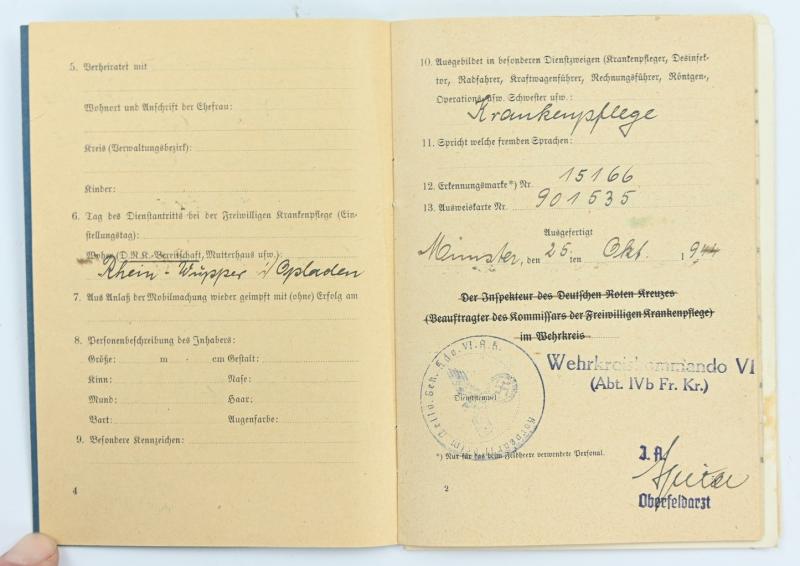 5. Verheiratet mit
Wohnort und Anschrift der Ehefrau:
Kreis (Verwaltungsbezirk):
Kinder:
6. Tag des Dienstantritts bei der Freiwilligen Krankenpflege (Ein-
stellungstag):
Woher (D.R.K.-Bereitschaft, Mutterhaus usw.):
Rhein-Wupper i/Opladen
7. Aus Anlaß der Mobilmachung wieder geimpft mit (ohne) Erfolg am
8. Personenbeschreibung des Inhabers:
Größe: m cm Gestalt:
Kinn: Nase:
Mund: Haar:
Bart: Augenfarbe:
9. Besondere Kennzeichen:
4
10. Ausgebildet in besonderen Dienstzweigen (Krankenpfleger, Desinfek-
tor, Radfahrer, Kraftwagenführer, Rechnungsführer, Röntgen-,
Operations- usw. Schwester usw.:
Krankenpflege
11. Spricht welche fremden Sprachen:
12. Erkennungsmarke*) Nr. 15166
13. Ausweiskarte Nr. 901535
Ausgefertigt
Münster, den 25ten Okt. 194
Der Inspekteur des Deutschen Roten Kreuzes
(Beauftragter des Kommissars der Freiwilligen Krankenpflege)
im Wehrkreis
Wehrkreiskommando VI
(Abt. IVb Fr. Kr.)
Dienststempel
*) Nur für das beim Feldheere verwendete Personal.
J. A.
Oberfeldarzt
2